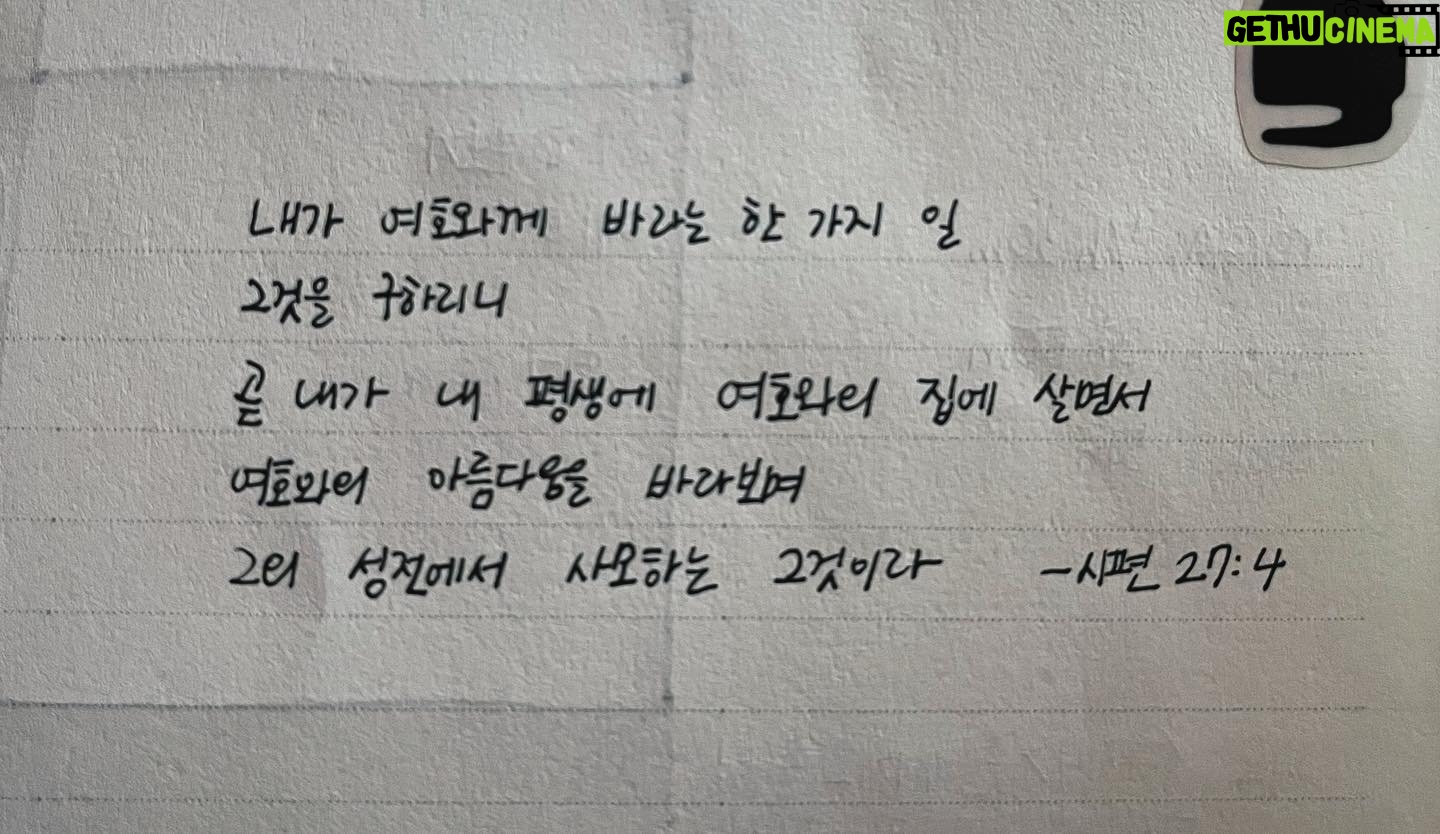 GETHUCINEMA
내가 여호와께 바라는 한 가지 일
그것을 구하리니
곧 내가 내 평생에 여호와의 집에 살면서
여호와의 아름다움을 바라보며
그의 성전에서 사모하는 그것이라 -시편 27:4